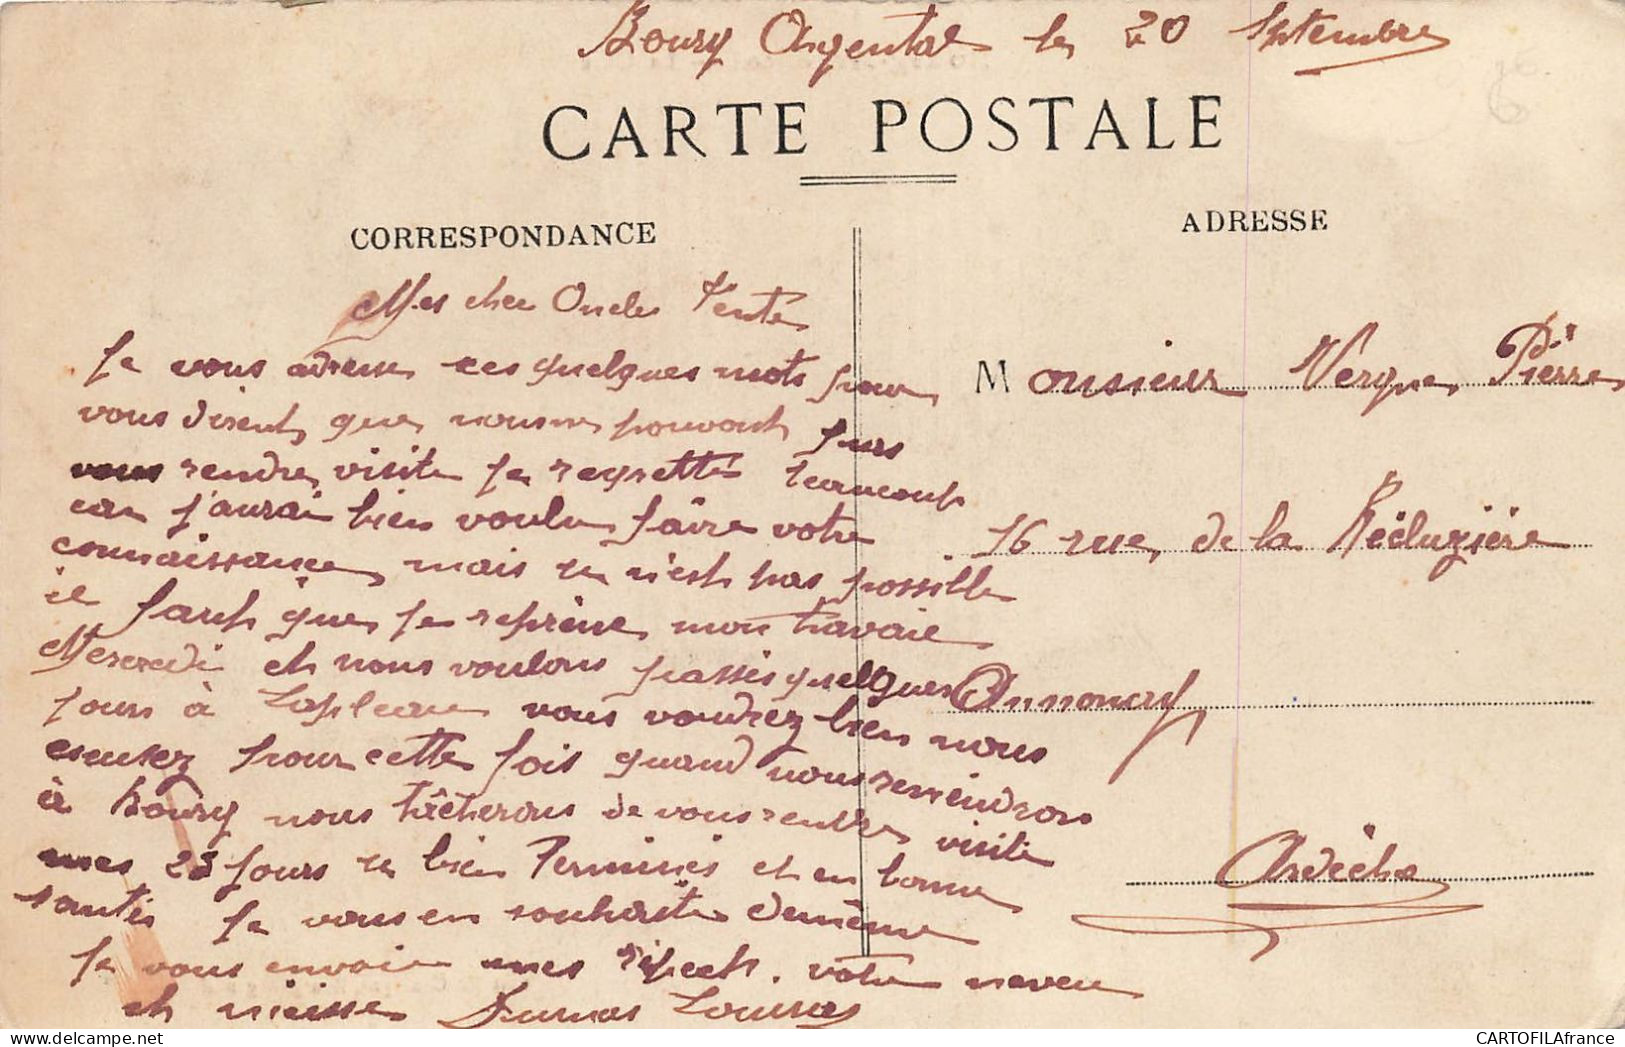 Bourg Argental le 20 Septembre
CARTE POSTALE
CORRESPONDANCE
ADRESSE
Mes cher Oncle Tente
Je vous adresse ces quelques mots pour
vous dirent que nous ne pouvont pas
vous rendre visite je regrette beaucoup
car j'aurai bien voulu faire votre
connaissance mais se n'est pas possible
il faut que je reprène mon travaie
Mercredi et nous voulons passés quelques
jours à Lapleau vous voudrez bien nous
escusez pour cette fois quand nous reviendrons
à Bourg nous tâcherons de vous rendre visite
mes 23 jours se bien Terminés et en bonne
santés je vous en souhaite demême
Je vous envoie mes respect. votre neveu
et nièsse Dumas Louise
Monsieur Vergne Pièrre
16 rue de la Récluzière
Annonay
Ardèche
CARTOFILAfrance